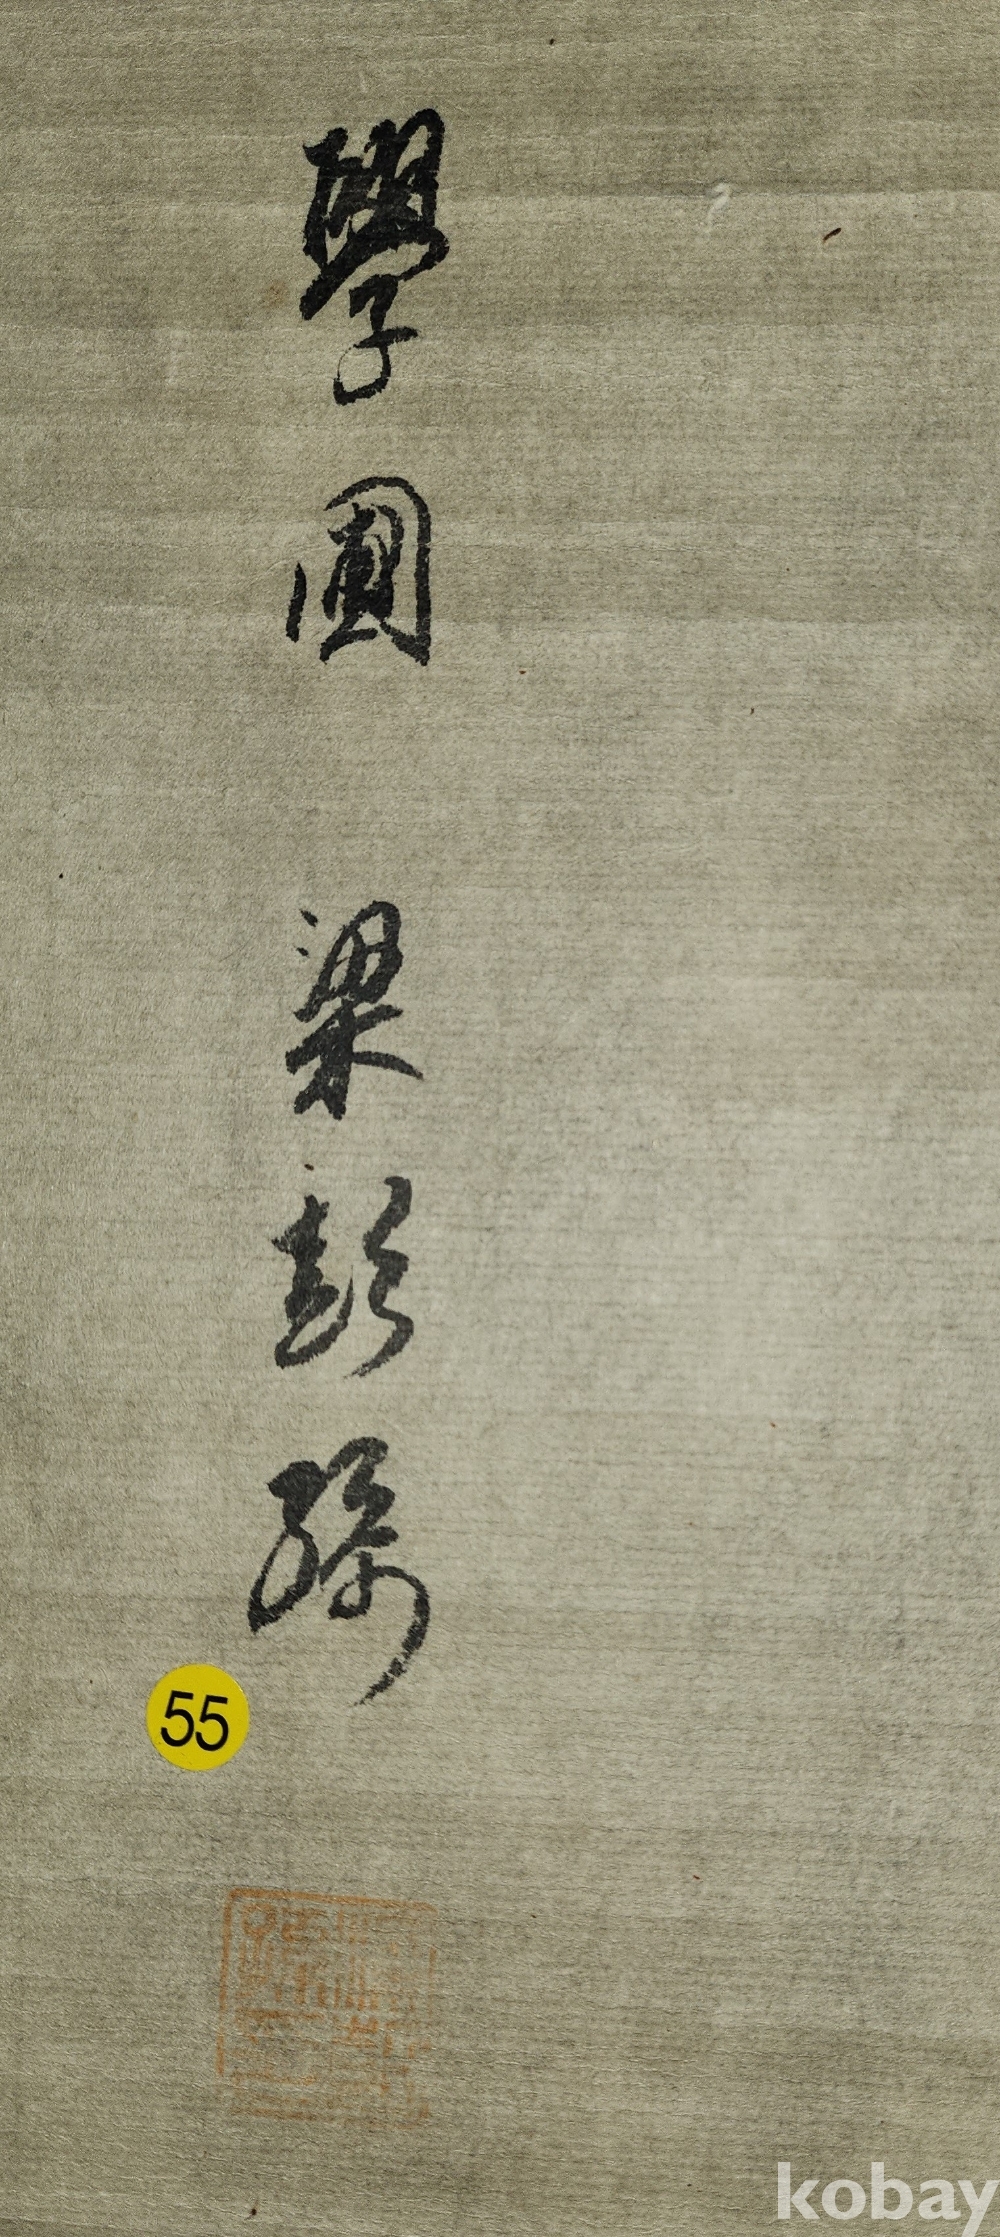 學圃 梁彭孫
55
kobay